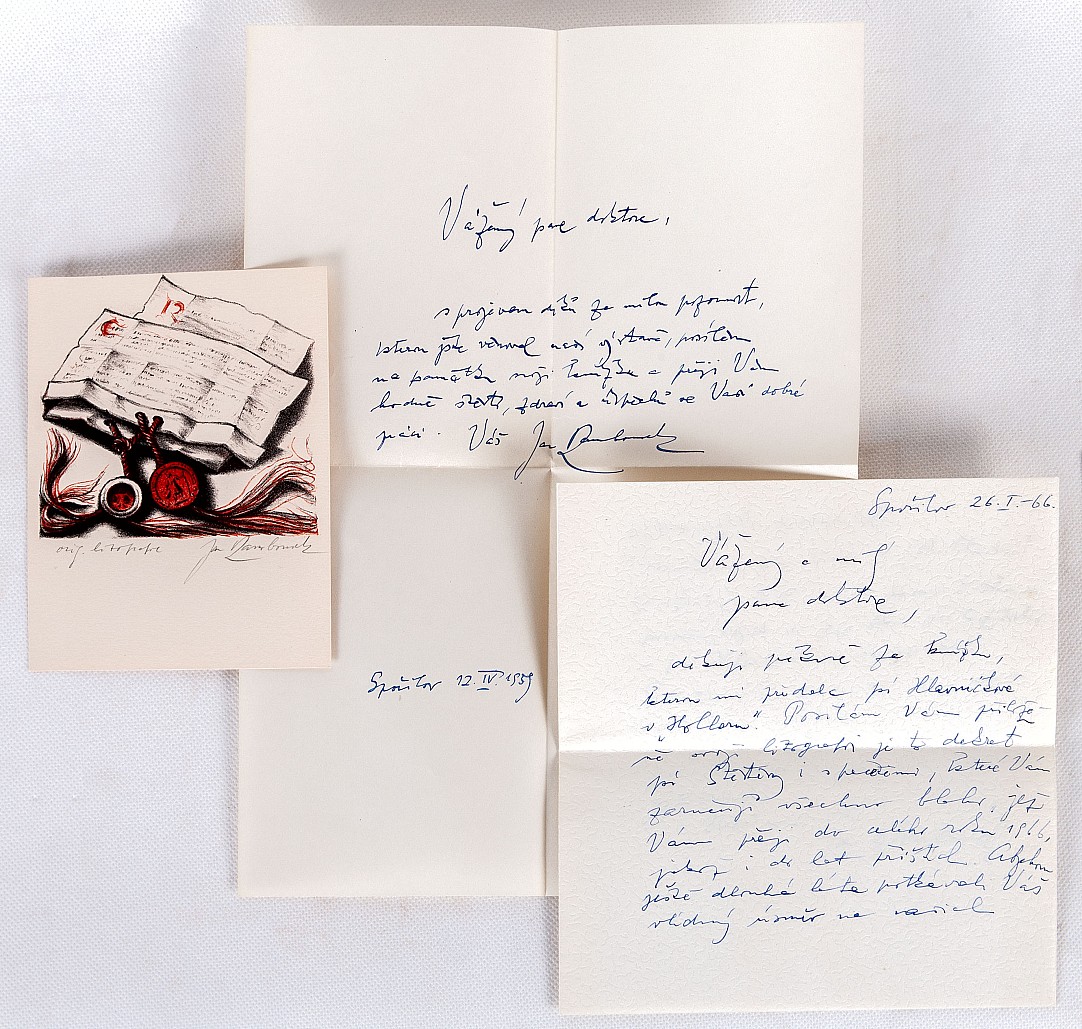 Vážený pane doktore,
s projevem díků za milou pozornost,
kterou jste věnoval naší výstavě, posílám
na památku svoji knížku a přeji Vám
hodně štěstí, zdraví a úspěchů ve Vaší dobré
práci. Váš Jan Rambousek
Spořilov 12.IV.1959
orig. litografie Jan Rambousek
Spořilov 26.I.-66.
Vážený a milý
pane doktore,
děkuji pěkně za knížku,
kterou mi předala pí Hlavničková
v "Hollaru". Posílám Vám přilože-
ně svoji litografii je to dekret
pí Štěstěny i s pečetěmi, které Vám
zaručují všechno blaho, jež
Vám přeji do celého roku 1966,
jakož i do let příštích. Abychom
ještě dlouhá léta potkávali Váš
vlídný úsměv na našich